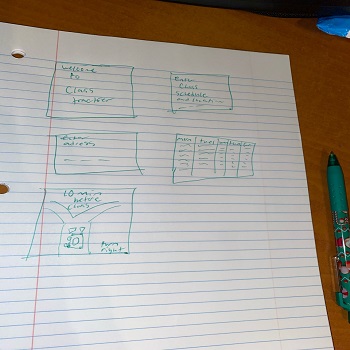 Welcome
to
Class
tracker
Enter
Class
Schedule
Enter
address
mon tues
10 min
before
class
turn
right